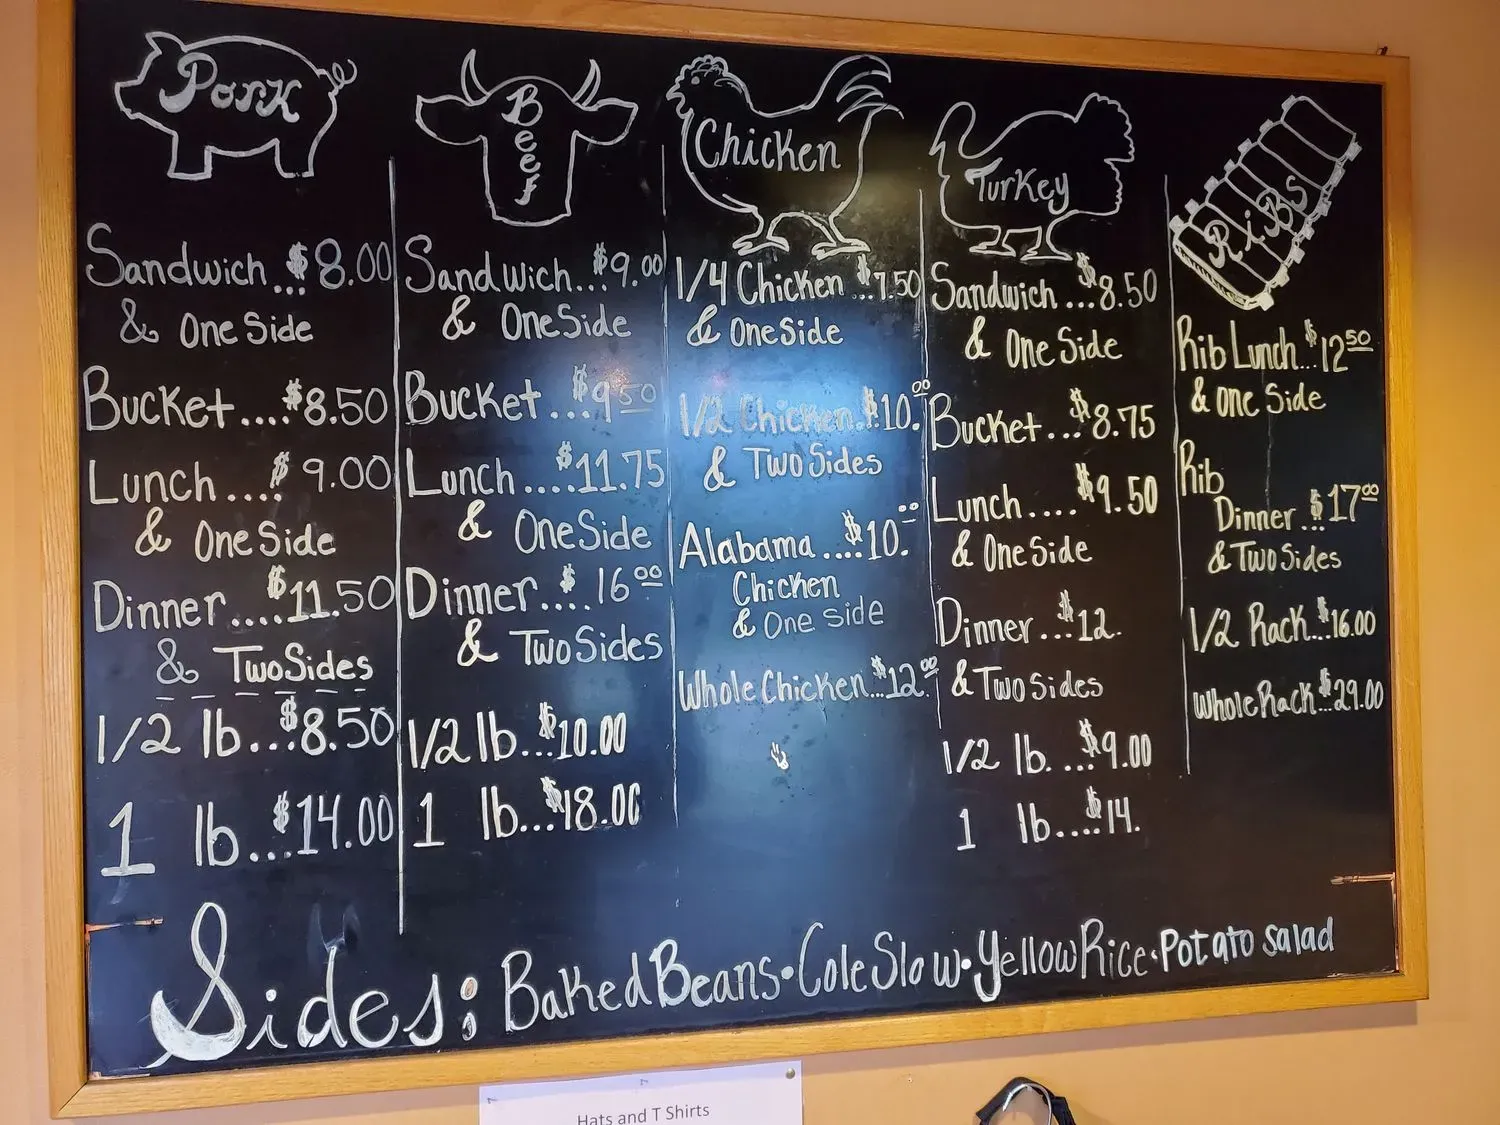 Pork
Sandwich...$8.00
& One Side
Bucket....$8.50
Lunch....$9.00
& One Side
Dinner....$11.50
& Two Sides
1/2 lb...$8.50
1 lb...$14.00
Beef
Sandwich...$9.00
& One Side
Bucket...$9.50
Lunch....$11.75
& One Side
Dinner....$16.00
& Two Sides
1/2 lb...$10.00
1 lb...$18.00
Chicken
1/4 Chicken...$7.50
& One Side
1/2 Chicken...$10.00
& Two Sides
Alabama...$10.00
Chicken
& One Side
Whole Chicken...$12.00
Turkey
Sandwich...$8.50
& One Side
Bucket...$8.75
Lunch....$9.50
& One Side
Dinner...$12.
& Two Sides
1/2 lb. ...$9.00
1 lb....$14.
RiBS
Rib Lunch...$12.50
& One Side
Rib
Dinner...$17.00
& Two Sides
1/2 Rack...$16.00
Whole Rack...$29.00
Sides: Baked Beans • Cole Slow • Yellow Rice • Potato Salad
Hats and T Shirts